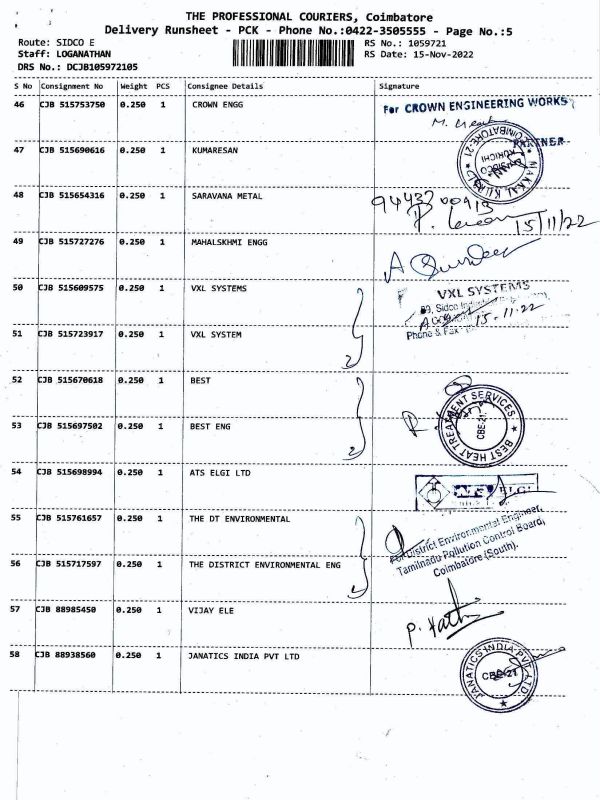 THE PROFESSIONAL COURIERS, Coimbatore
Delivery Runsheet - PCK - Phone No.:0422-3505555 - Page No.:5
Route: SIDCO E
RS No.: 1059721
Staff: LOGANATHAN
RS Date: 15-Nov-2022
DRS No.: DCJB105972105
S No Consignment No Weight PCS Consignee Details Signature
46 CJB 515753750 0.250 1 CROWN ENGG
For CROWN ENGINEERING WORKS
PARTNER
MAKKAL KURAL COIMBATORE-21
SIDCO
KURICHI
47 CJB 515690616 0.250 1 KUMARESAN
48 CJB 515654316 0.250 1 SARAVANA METAL
15/11/22
49 CJB 515727276 0.250 1 MAHALSKHMI ENGG
50 CJB 515609575 0.250 1 VXL SYSTEMS
VXL SYSTEMS
89, Sidco
15-11-22
Phone & Fax
51 CJB 515723917 0.250 1 VXL SYSTEM
2
52 CJB 515670618 0.250 1 BEST
BEST HEAT TREATMENT SERVICES
CBE-21
53 CJB 515697502 0.250 1 BEST ENG
2
54 CJB 515698994 0.250 1 ATS ELGI LTD
ELGI
55 CJB 515761657 0.250 1 THE DT ENVIRONMENTAL
For District Environmental Engineer,
Tamilnadu Pollution Control Board,
Coimbatore (South).
56 CJB 515717597 0.250 1 THE DISTRICT ENVIRONMENTAL ENG
2
57 CJB 88985450 0.250 1 VIJAY ELE
58 CJB 88938560 0.250 1 JANATICS INDIA PVT LTD
JANATICS INDIA PVT LTD
CBE-21